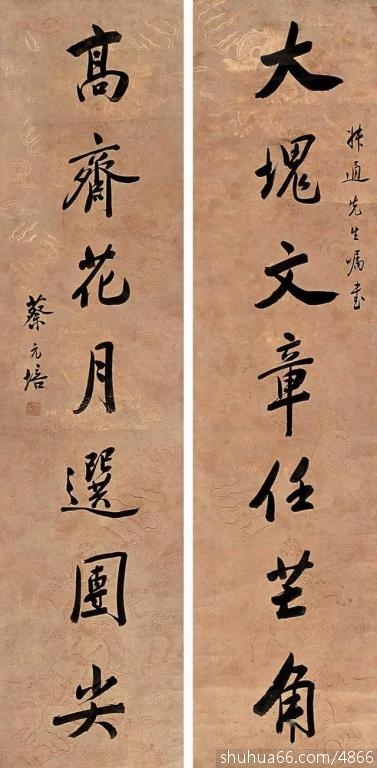 大塊文章任芒角
叔通先生嘱書
髙齋花月選團尖
蔡元培
shuhua66.com/4866